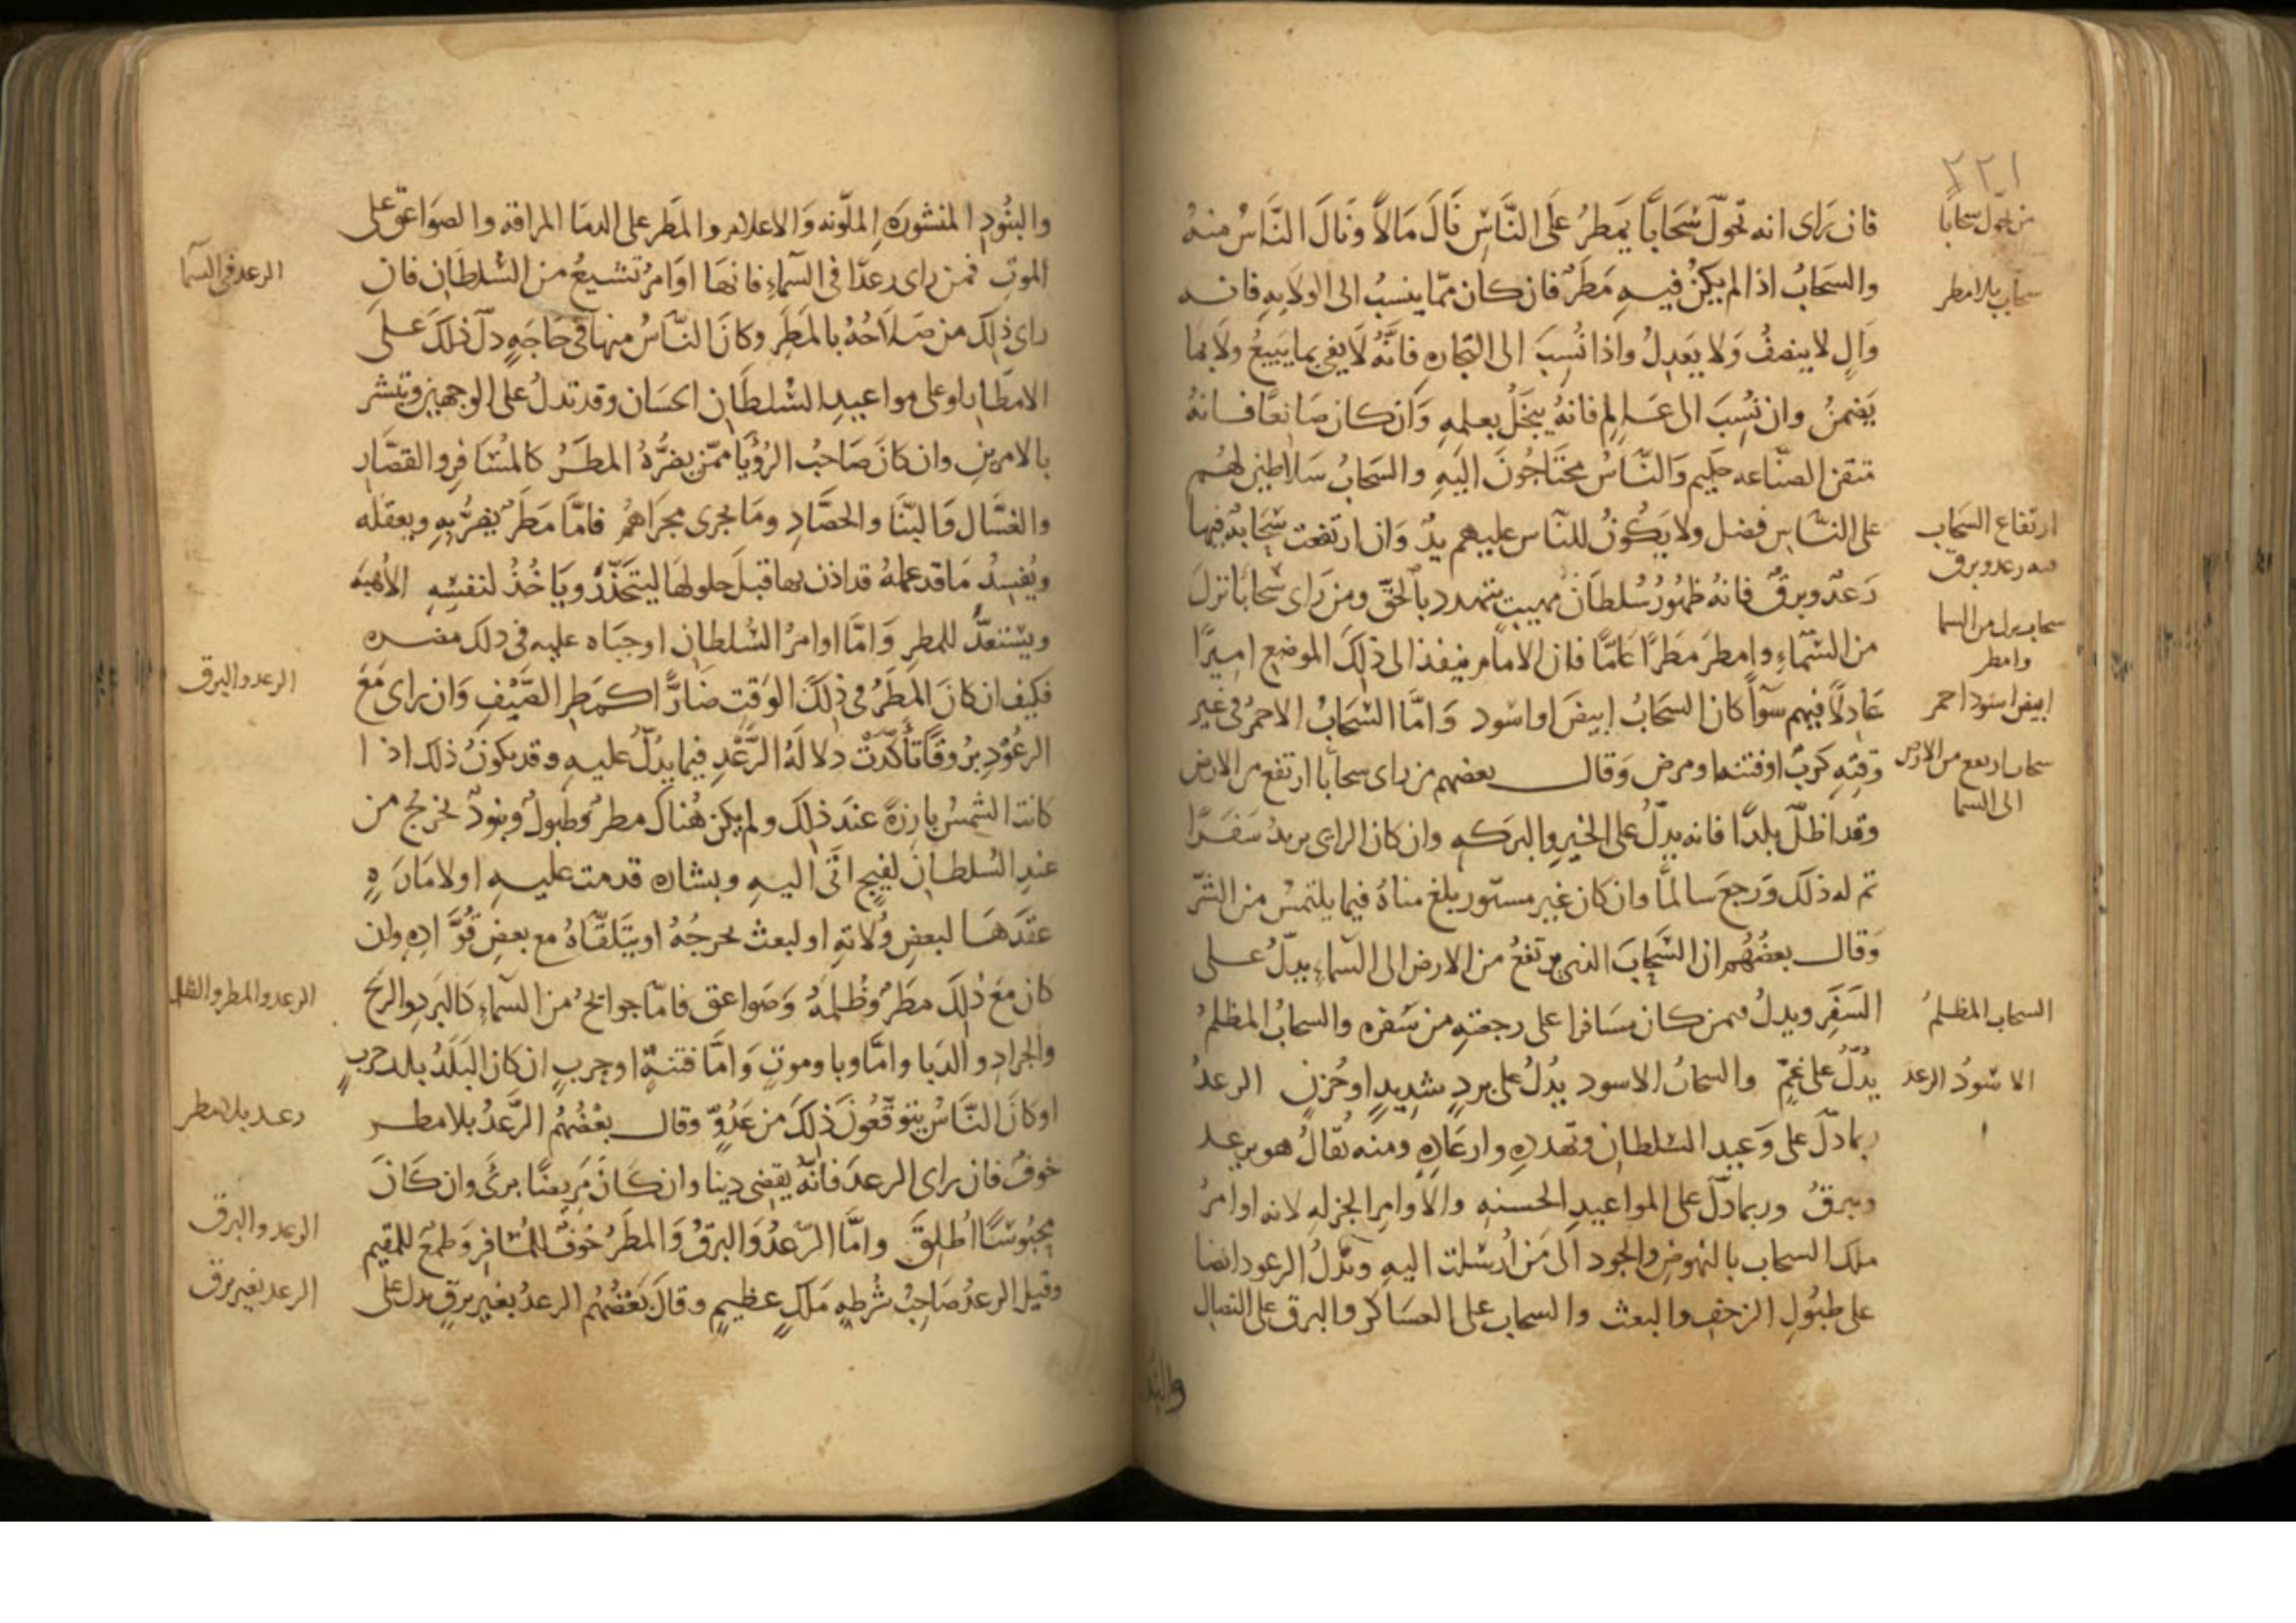 ٢٢١
من تحول سحابا
فان رَاى انه تحوّل سَحَابًا يَمطرُ عَلى النَّاسِ نَالَ مَالاً وَنَالَ النَّاسُ منهُ
سحاب بلا مطر
والسَحَابُ اذا لم يكنْ فيهِ مَطَرٌ فان كان ممّا ينسبُ الى الولايهِ فانه
وَالٍ لا ينصفُ وَلا يَعدِلُ واذا نُسِبَ الى التجارهِ فَانَّهُ لَا يفى بما يَبيعُ ولَا بما
يَضمنُ وان نُسِبَ الى عَالِم فانهُ يبخَلُ بعلمهِ وَان كان صَانعًا فانهُ
متقن الصنّاعه حَكيم وَالنَّاسُ محتَاجُونَ اليَهِ والسَحَابُ سَلاطين لهُم
ارتفاع السَحَاب
على النَّاسِ فضل ولا يَكُونُ للنّاس عليهم يدٌ وَان ارتفعت سَحَابةٌ فيها
فيه رعد وبرق
رَعدٌ وبرقٌ فانهُ ظهُورُ سُلطَان مهيب يتهدد بالحَقّ ومَن رَاى سَحَابًا نزلَ
سحاب نزل من السما
وامطر
من السَّماءِ وامطرَ مَطَرًا عَامًّا فان الامَام ينفذ الى ذلِكَ الموضع امِيرًا
ابيض اسَود احمر
عَادِلاً فيهم سَوآً كان السَحَابُ ابيضَ او اسْود وَامَّا السَّحَابُ الاحمرُ فى غير
سحاب ارتفع من الارض
الى السما
وَقتِهِ كربٌ او فتنه او مرض وَقال بعضهم من راى سحابًا ارتفع من الارض
وقد اظلّ بلدًا فانه يدلّ على الخير والبَركهِ وان كان الراى يريدُ سَفَرًا
تم له ذلك وَرجعَ سالمًا وان كان غير مستور بلغ مناهُ فيما يلتمسُ من الشّر
وَقال بعضُهُم ان السَّحَابَ الذى يرتفعُ من الارض الى السّماءِ يدلّ على
السحاب المظلمُ
السَفَرِ ويدلُ فيمن كان مسَافرا على رجعتهِ من سَفره والسحابُ المظلمُ
الاسْودُ الرعد
يدُلّ على غَمٍّ والسحابُ الاسود يدُلُ على بردٍ شديدٍ او حُزنٍ الرعدُ
ربما دلّ على وَعيدِ السلطانِ وتهددهِ وارعَادِهِ ومنه يُقالُ هو يرعد
ويبرقُ وربما دلّ على المواعيدِ الحسنهِ والاوامِر الجزلهِ لانه اوامرُ
ملك السحاب بالنهوضِ والجود الى مَن اُرسلت اليهِ وتدُلُ الرعود ايضا
على طبُولِ الزحفِ والبعث والسحاب على العسَاكرِ والبرق على النصال
والبنو
والبنُودِ المنشورَهِ الملَوّنه وَالاعلام والمَطَر على الدمَا المراقه والصوَاعق على
الرعد فى السمآ
الموتِ فمن راى رعدًا فى السَّماءِ فانهَا اوَامرُ تشيعُ من السُّلطَانِ فان
راى ذلِكَ من صَلَاحُهُ بالمَطَرِ وكانَ النّاسُ منها فى حَاجَهٍ دلّ ذلكَ عَلى
الامطَارِ او على مواعيدِ السُّلطَانِ الحسَان وقد تدلُ على الوجهين وتبشر
بالامرينِ وان كَانَ صَاحبُ الرُؤيَا ممّن يضُرُّهُ المطَرُ كالمُسَافِرِ والقصّارِ
والغسَّال وَالبنَّا والحصَّادِ ومَا يجرى مجرَاهُم فامَّا مَطَرٌ يضرُّ بِهِ ويعقله
ويُفسِدُ مَا قد عملهُ قد اذن بها قبلَ حلولهَا ليتَحَذّرَ ويَاخُذ لنفسِهِ الأُهبَه
ويسْتعدَّ للمطرِ وَامَّا اوامرُ السُلطان او جبَاه عليه فى ذلك مضره
الرعد والبرق
فكيف ان كانَ المطَرُ فى ذلكَ الوقتِ ضَارًّا كمَطرِ الصَّيْفِ وَان راى مَعَ
الرعُوْدِ بروقًا تأكّدَتْ دلالَهُ الرَّعْدِ فيما يدُلّ عليهِ وقد يكونُ ذلك اذا
كانت الشمسُ بارِزَةً عندَ ذلِكَ ولم يكن هُناكَ مطرٌ وَطبولٌ وبنودٌ تخرجُ من
عندِ السُلطانَ لفيجٍ اتَى اليهِ وبشاره قدمت عليهِ او لامَارَهٍ
عقَدَهَا لبعضِ وُلاتهِ او لبعث يخرجُهُ او يتَلقّاهُ مع بعضِ قُوَّادِهِ وان
الرعد والمطر والظلم
كان معَ ذلِكَ مطَرٌ وَظُلمةٌ وَصَواعق فامّا جوائحُ من السمآءِ كَالبَرَدِ والريح
والجرادِ والدَبا وامَّا وبا وموتٍ وَامَّا فتنةٌ او حربٍ ان كان البَلَدُ بلدَ حربٍ
رعد بلا مطر
او كانَ النَّاسُ يتوقّعُونَ ذَلِكَ من عَدُوّ وقال بعْضُهُم الرَّعدُ بلا مطر
خوفٌ فان راى الرعدَ فانّهُ يقضى دينا وان كَانَ مَريضًا برئَ وان كَانَ
الرعد والبرق
مَحبُوسًا اُطلِقَ وامَّا الرّعدُ وَالبرقُ وَالمطَرُ خوفٌ للمُسَافِر وَطمعٌ للمقيم
الرعد بغير برق
وقيل الرعدُ صَاحِبُ شُرطهِ مَلَكٍ عظيمٍ وقَالَ بَعضُهُم الرعدُ بغير برقٍ يدل على